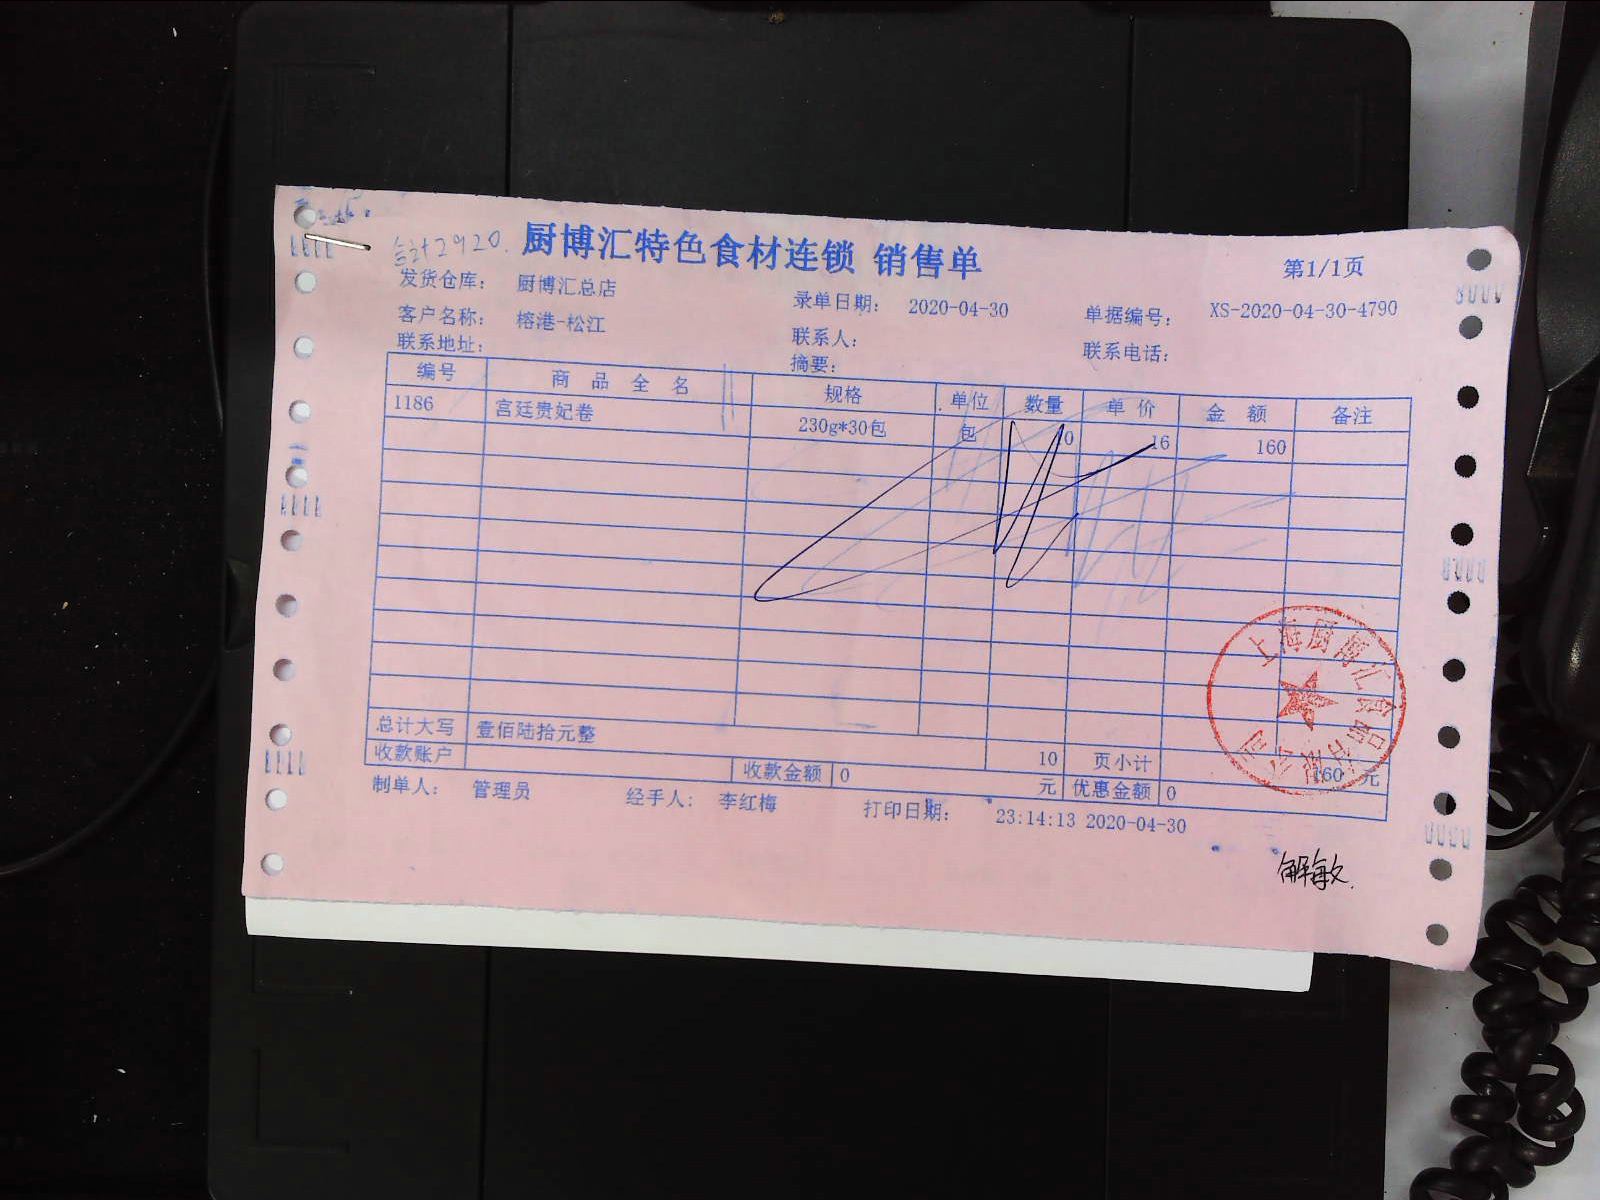 合计2920.
厨博汇特色食材连锁 销售单
第1/1页
发货仓库： 厨博汇总店 录单日期： 2020-04-30 单据编号： XS-2020-04-30-4790
客户名称： 榕港-松江 联系人： 联系电话：
联系地址： 摘要：
编号 商品全名 规格 单位 数量 单价 金额 备注
1186 宫廷贵妃卷 230g*30包 包 10 16 160
总计大写 壹佰陆拾元整 10 页小计 160 元
收款账户 收款金额 0 元 优惠金额 0
制单人： 管理员 经手人： 李红梅 打印日期： 23:14:13 2020-04-30
上海厨博汇食品有限公司
解敏